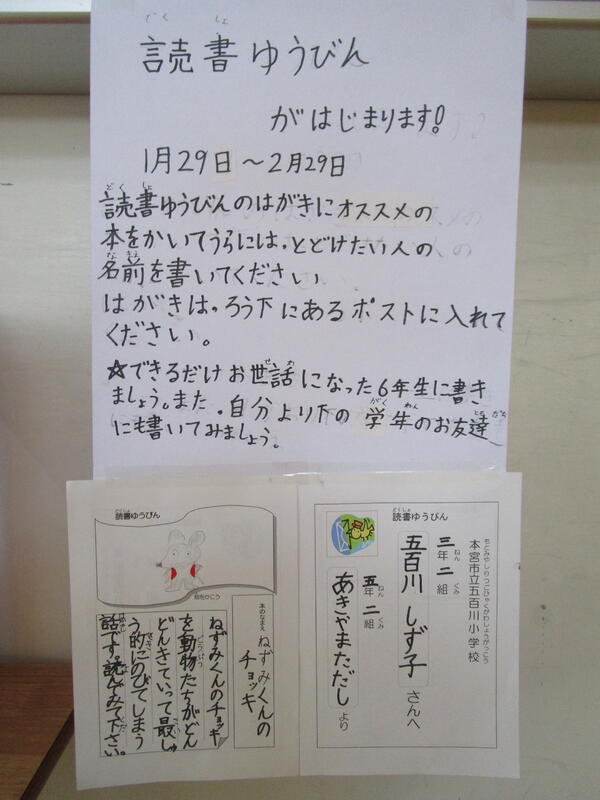 読書ゆうびん
がはじまります!
1月29日~2月29日
読書ゆうびんのはがきにオススメの
本をかいてうらには、とどけたい人の
名前を書いてください
はがきは、ろう下にあるポストに入れて
ください。
☆できるだけお世話になった6年生に書き
ましょう。また、自分より下の学年のお友達
にも書いてみましょう。
読書ゆうびん
絵をかこう
本のなまえ
ねずみくんの
チョッキ
ねずみくんのチョッキ
を動物たちがどん
どんきていって最しゅ
う的にのびてしまう
話です。読んでみて下さい。
読書ゆうびん
本宮市立五百川小学校
三年二組
五百川 しず子 さんへ
五年二組
あきやまただし より